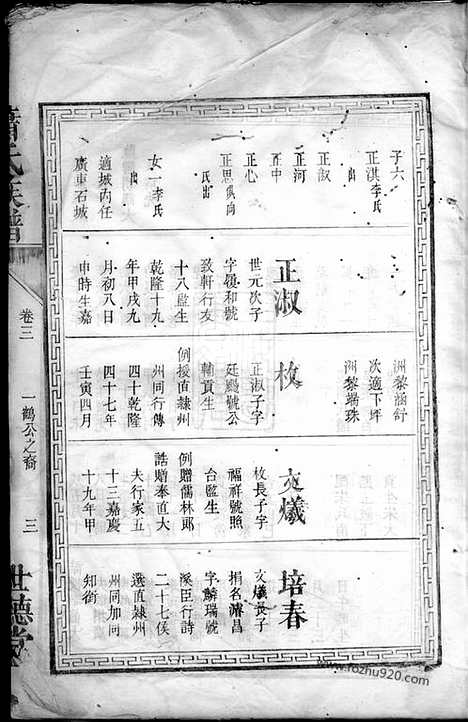 子六
正淇李氏
出
正淑
正河
正中
正心
正思偰尚
氏出
女一李氏
出
適城內任
廣東石城
正淑
世元次子
字履和號
致軒行友
十八監生
乾隆十九
年甲戌九
月初八日
申時生嘉
洲黎涵舒
次適下坪
洲黎瑞珠
枚
正淑子字
廷颺號公
輔貢生
例授直隸州
州同行傳
四十乾隆
四十七年
壬寅四月
文爔
枚長子字
福祥號照
台監生
例贈儒林郎
誥贈奉直大
夫行家五
十三嘉慶
十九年甲
培春
文爔長子
捐名濬昌
字麟瑞號
溪臣行詩
二十七俟
選直隸州
州同加同
知銜
蕭氏族譜
卷三
一鶴公之裔
三
世德堂
www.fozhu920.com